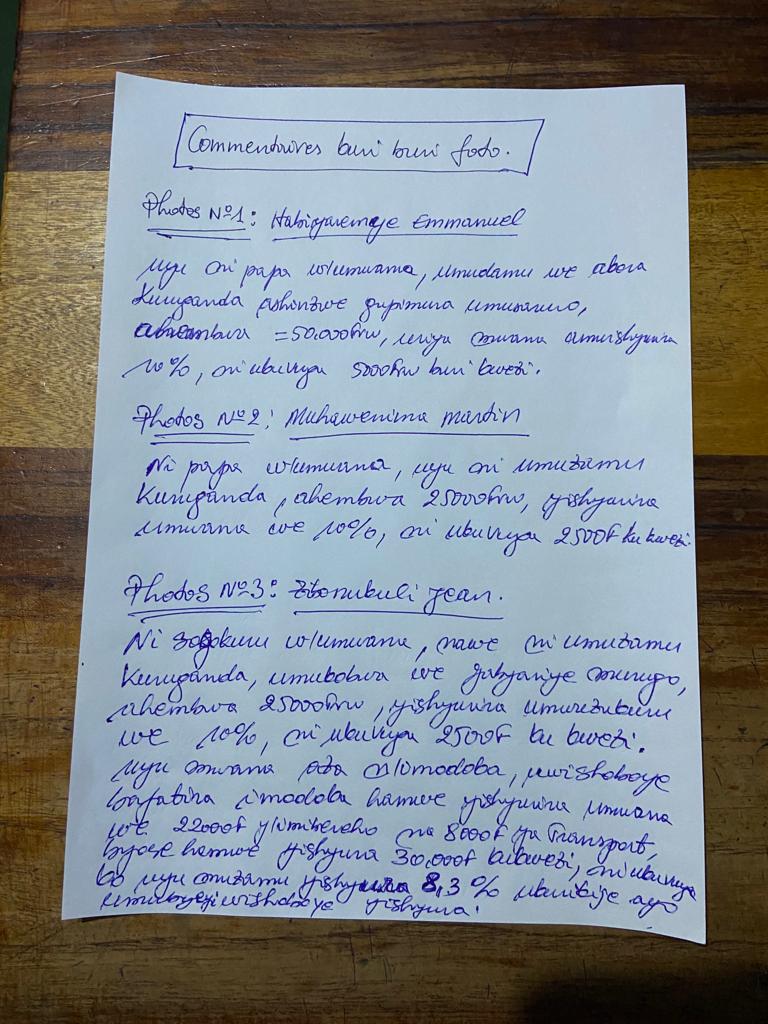 Commentaires buri buri foto.
Photos Nº1: Habiyaremye Emmanuel
Uyu ni papa w'umwana, umudamu we akora
Kuruganda ashinzwe gupimura umusaruro,
ahembwa = 50.000frw, uriya mwana amwishyurira
10%, ni ukuvuga 5000frw buri kwezi.
Photos Nº2: Muhawenima martin
Ni papa w'umwana, uyu ni umuzamu
Kuruganda, ahembwa 25000frw, yishyurira
umwana we 10%, ni ukuvuga 2500F ku kwezi.
Photos Nº3: jean.
Ni sogokuru w'umwana, nawe ni umuzamu
Kuruganda, umukobwa we yabyariye murugo,
ahembwa 25000frw, yishyurira umwuzukuru
we 10%, ni ukuvuga 2500F ku kwezi.
Uyu mwana aza n'imodoka, uwishoboye
bafatira imodoka hamwe yishyurira umwana
we 22000F y'imirereho na 8000F ya Transport,
byose hamwe yishyura 30,000F kukwezi, ni ukuvuga
ko uyu muzamu yishyura 8,3% ubarikije ayo
umubyeyi wishoboye yishyura.